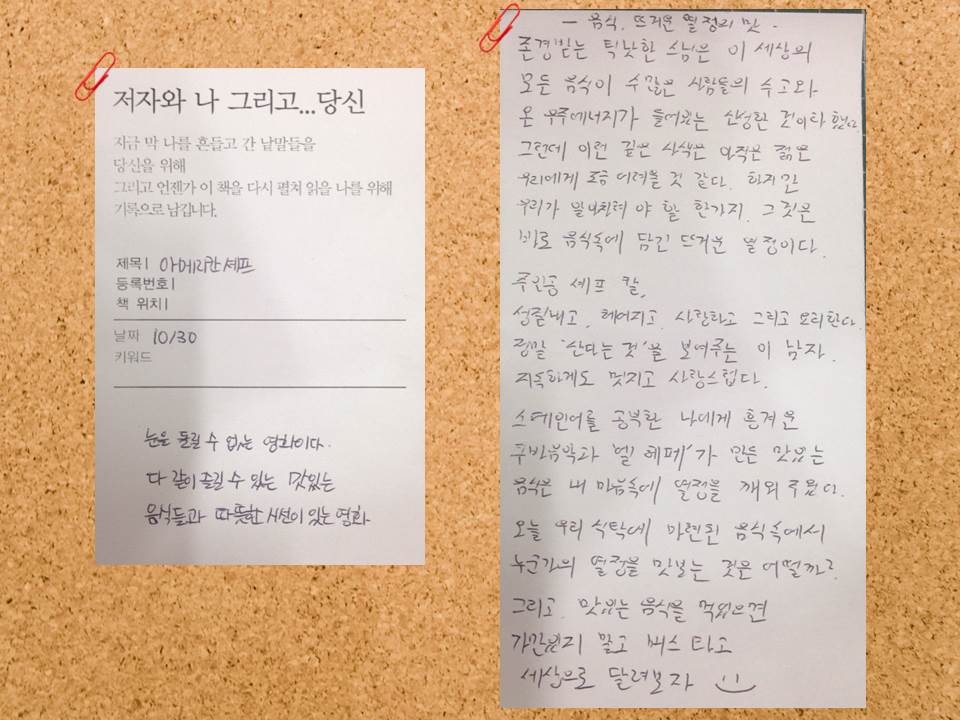 저자와 나 그리고...당신
지금 막 나를 흔들고 간 낱말들을
당신을 위해
그리고 언젠가 이 책을 다시 펼쳐 읽을 나를 위해
기록으로 남깁니다.
제목| 아메리칸 셰프
등록번호|
책 위치|
날짜 10/30
키워드
눈을 돌릴 수 없는 영화이다.
다 같이 즐길 수 있는 맛있는
음식들과 따뜻한 시선이 있는 영화
- 음식, 뜨거운 열정의 맛 -
존경받는 틱낫한 스님은 이 세상의
모든 음식이 수많은 사람들의 수고와
온 우주에너지가 들어있는 신성한 것이라 했다.
그런데 이런 깊은 사색은 아직은 젊은
우리에게 조금 어려울 것 같다. 하지만
우리가 알아차려 야 할 한가지. 그것은
바로 음식속에 담긴 뜨거운 열정이다.
주인공 셰프 칼,
성질내고, 헤어지고, 사랑하고 그리고 요리한다.
정말 '산다는 것'을 보여주는 이 남자.
지독하게도 멋지고 사랑스럽다.
스페인어를 공부한 나에게 흥겨운
쿠바음악과 '엘 헤페'가 만든 맛있는
음식은 내 마음속에 열정을 깨워 주었다.
오늘 우리 식탁에 마련된 음식속에서
누군가의 열정을 맛보는 것은 어떨까?
그리고, 맛있는 음식을 먹었으면
가만있지 말고 버스 타고
세상으로 달려보자